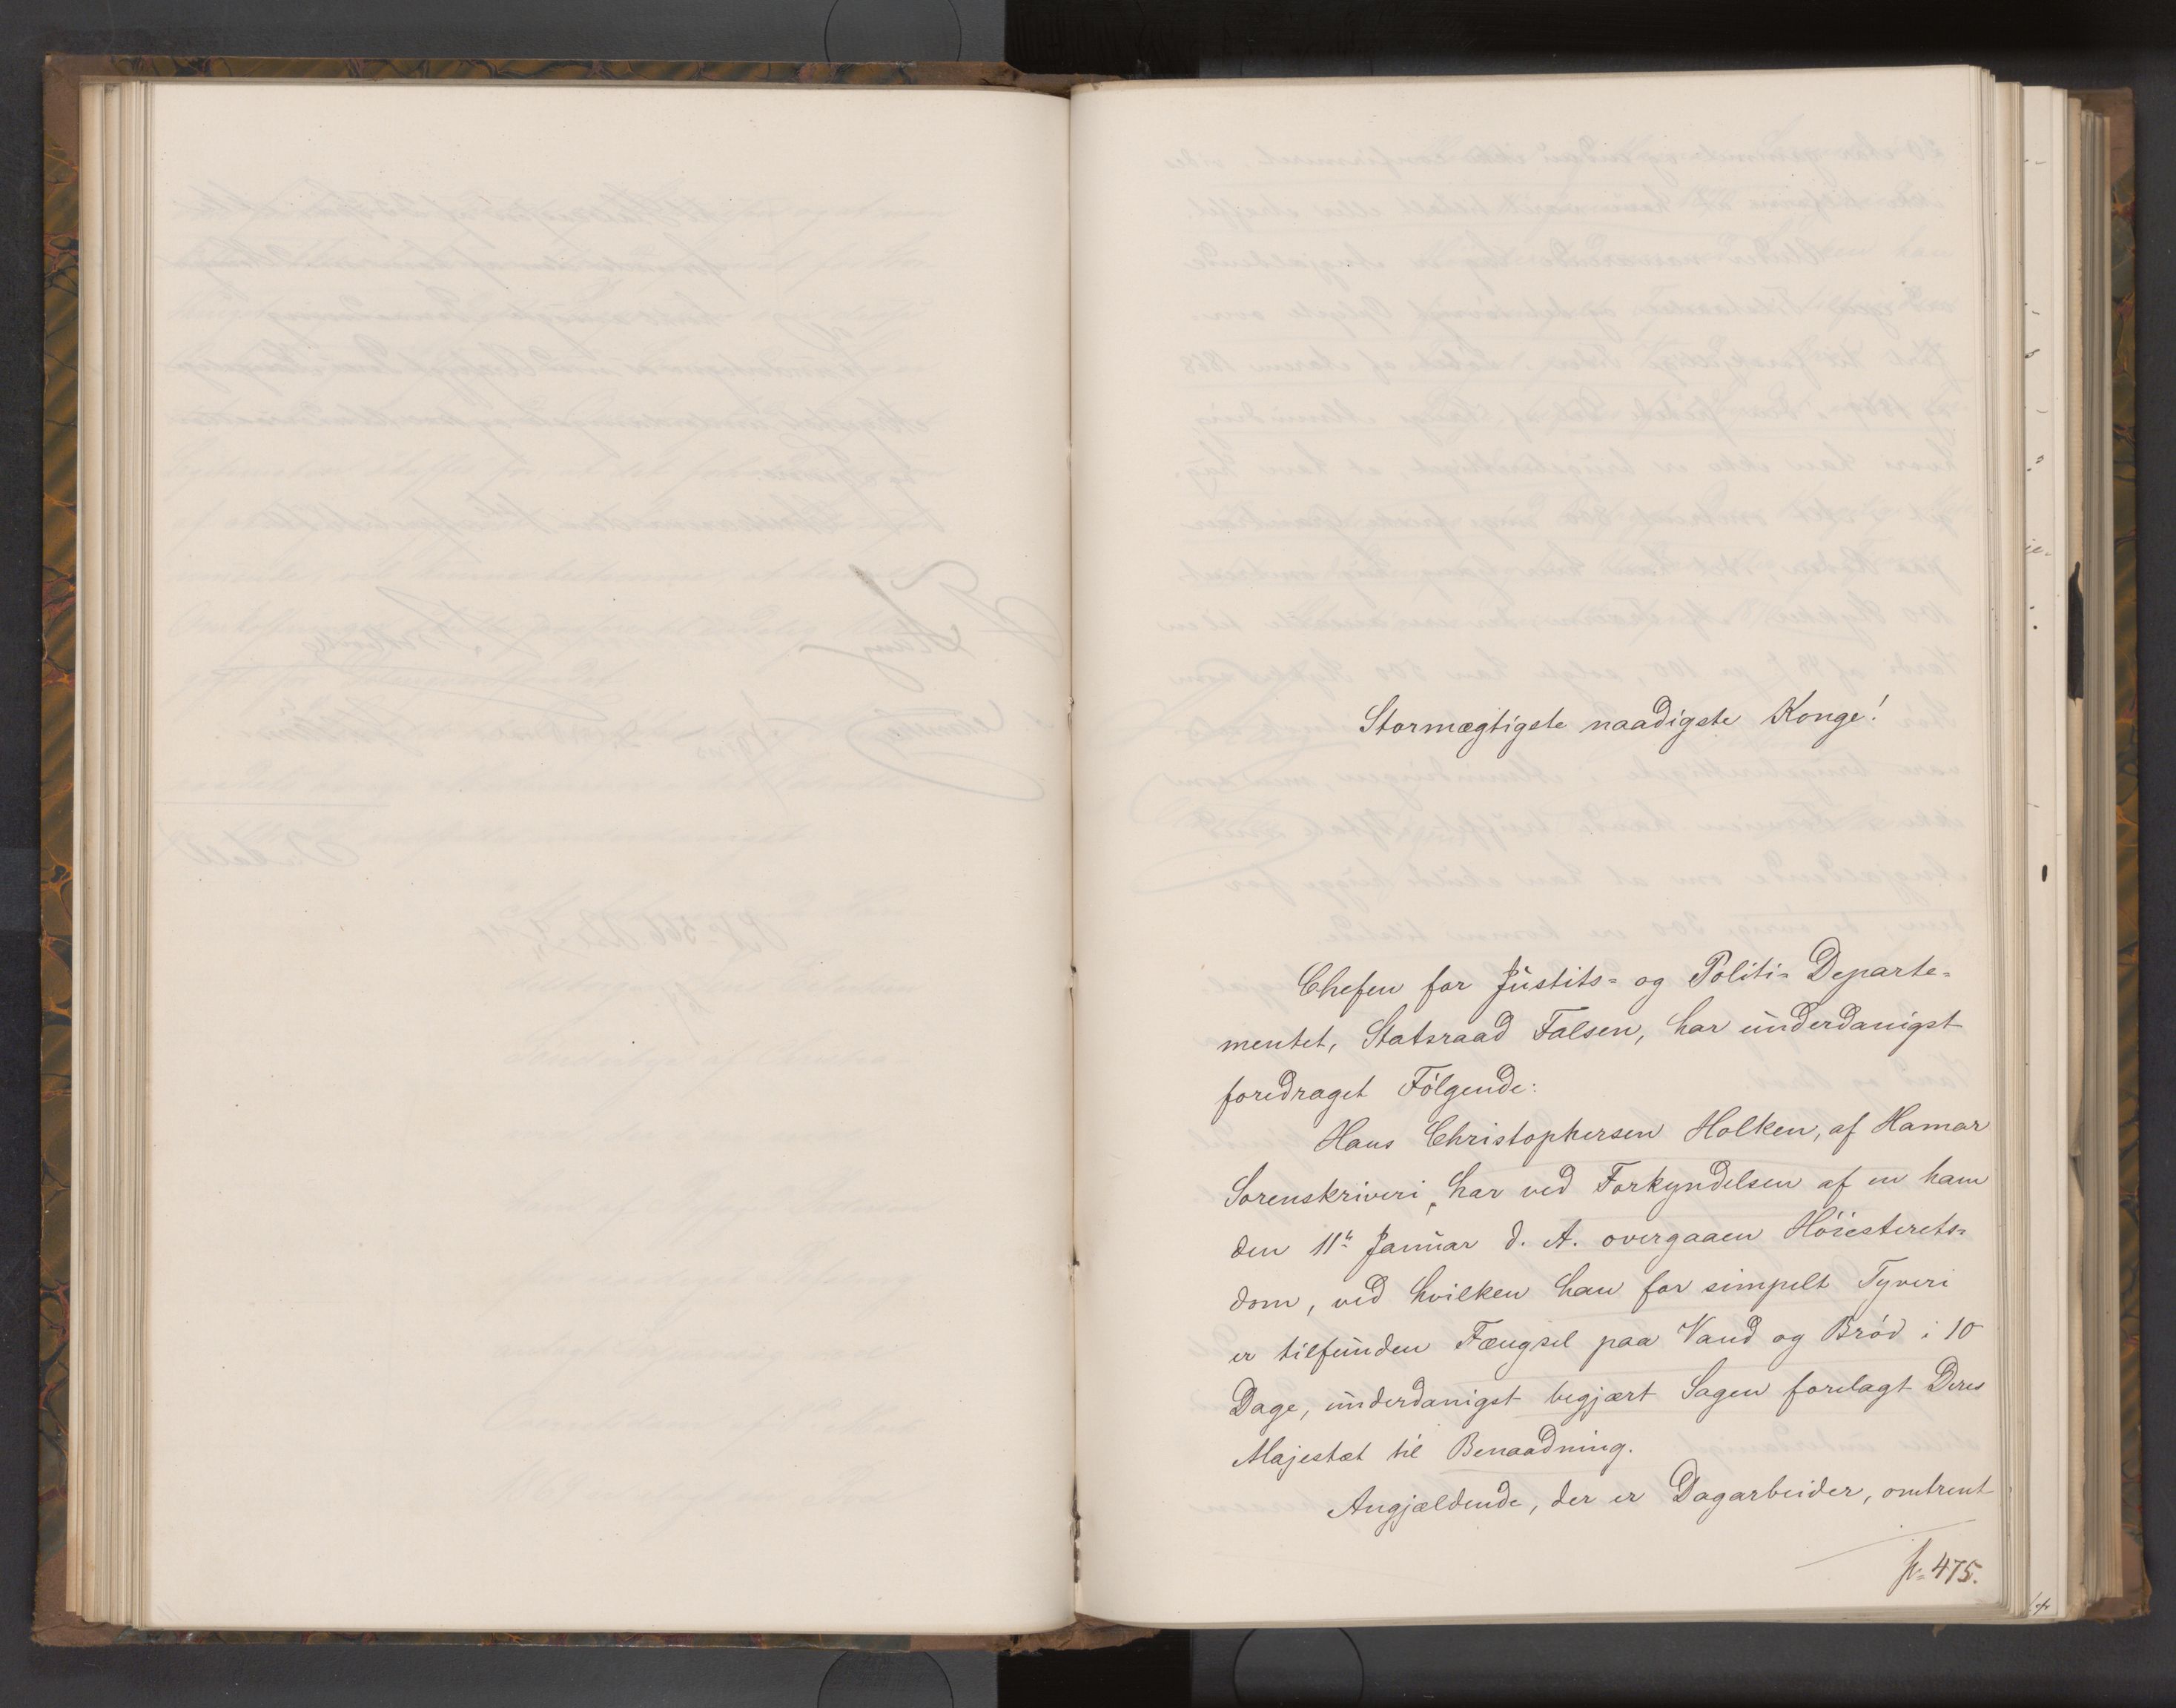 Stormægtigste naadigste Konge!
Chefen for Justits= og Politi= Departe=
mentet, Statsraad Falsen, har underdanigst
foredraget Følgende:
Hans Christophersen Holken, af Hamar
Sorenskriveri, har ved Forkyndelsen af en ham
den 11te Januar d. A. overgaaen Høiesterets=
dom, ved hvilken han for simpelt Tyveri
er tilfunden Fængsel paa Vand og Brød i 10
Dage, underdanigst begjært Sagen forelagt Deres
Majestæt til Benaadning.
Angjældende, der er Dagarbeider, omtrent
475.